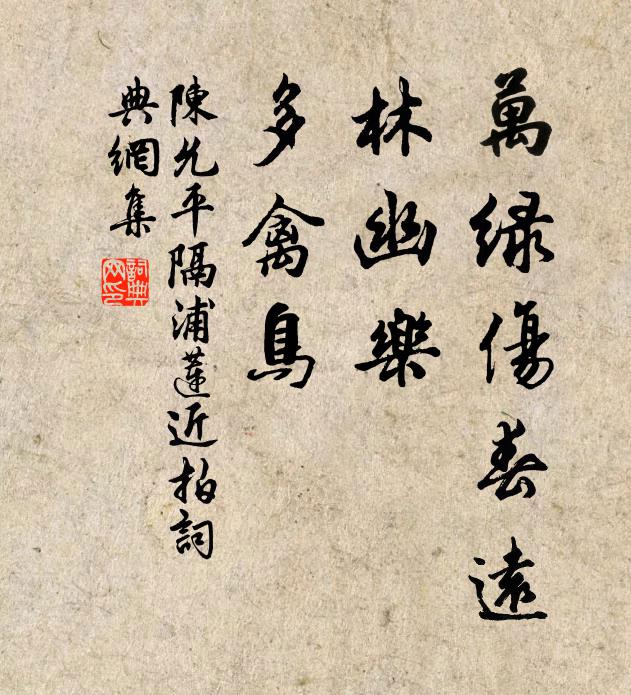 萬緑傷春遠
林幽樂
多禽鳥
陳允平隔浦蓮近拍詞
典網集
詞典網印